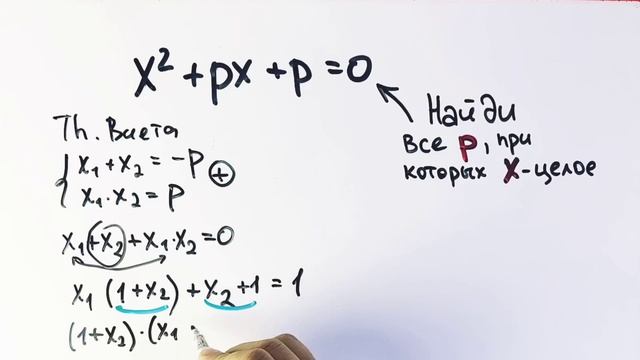 x² + px + p = 0
Найди
все p, при
которых x-целое
Th. Виета
{ x₁ + x₂ = -p
{ x₁ · x₂ = p
+
x₁ + x₂ + x₁ · x₂ = 0
x₁ (1 + x₂) + x₂ + 1 = 1
(1 + x₂) · (x₁